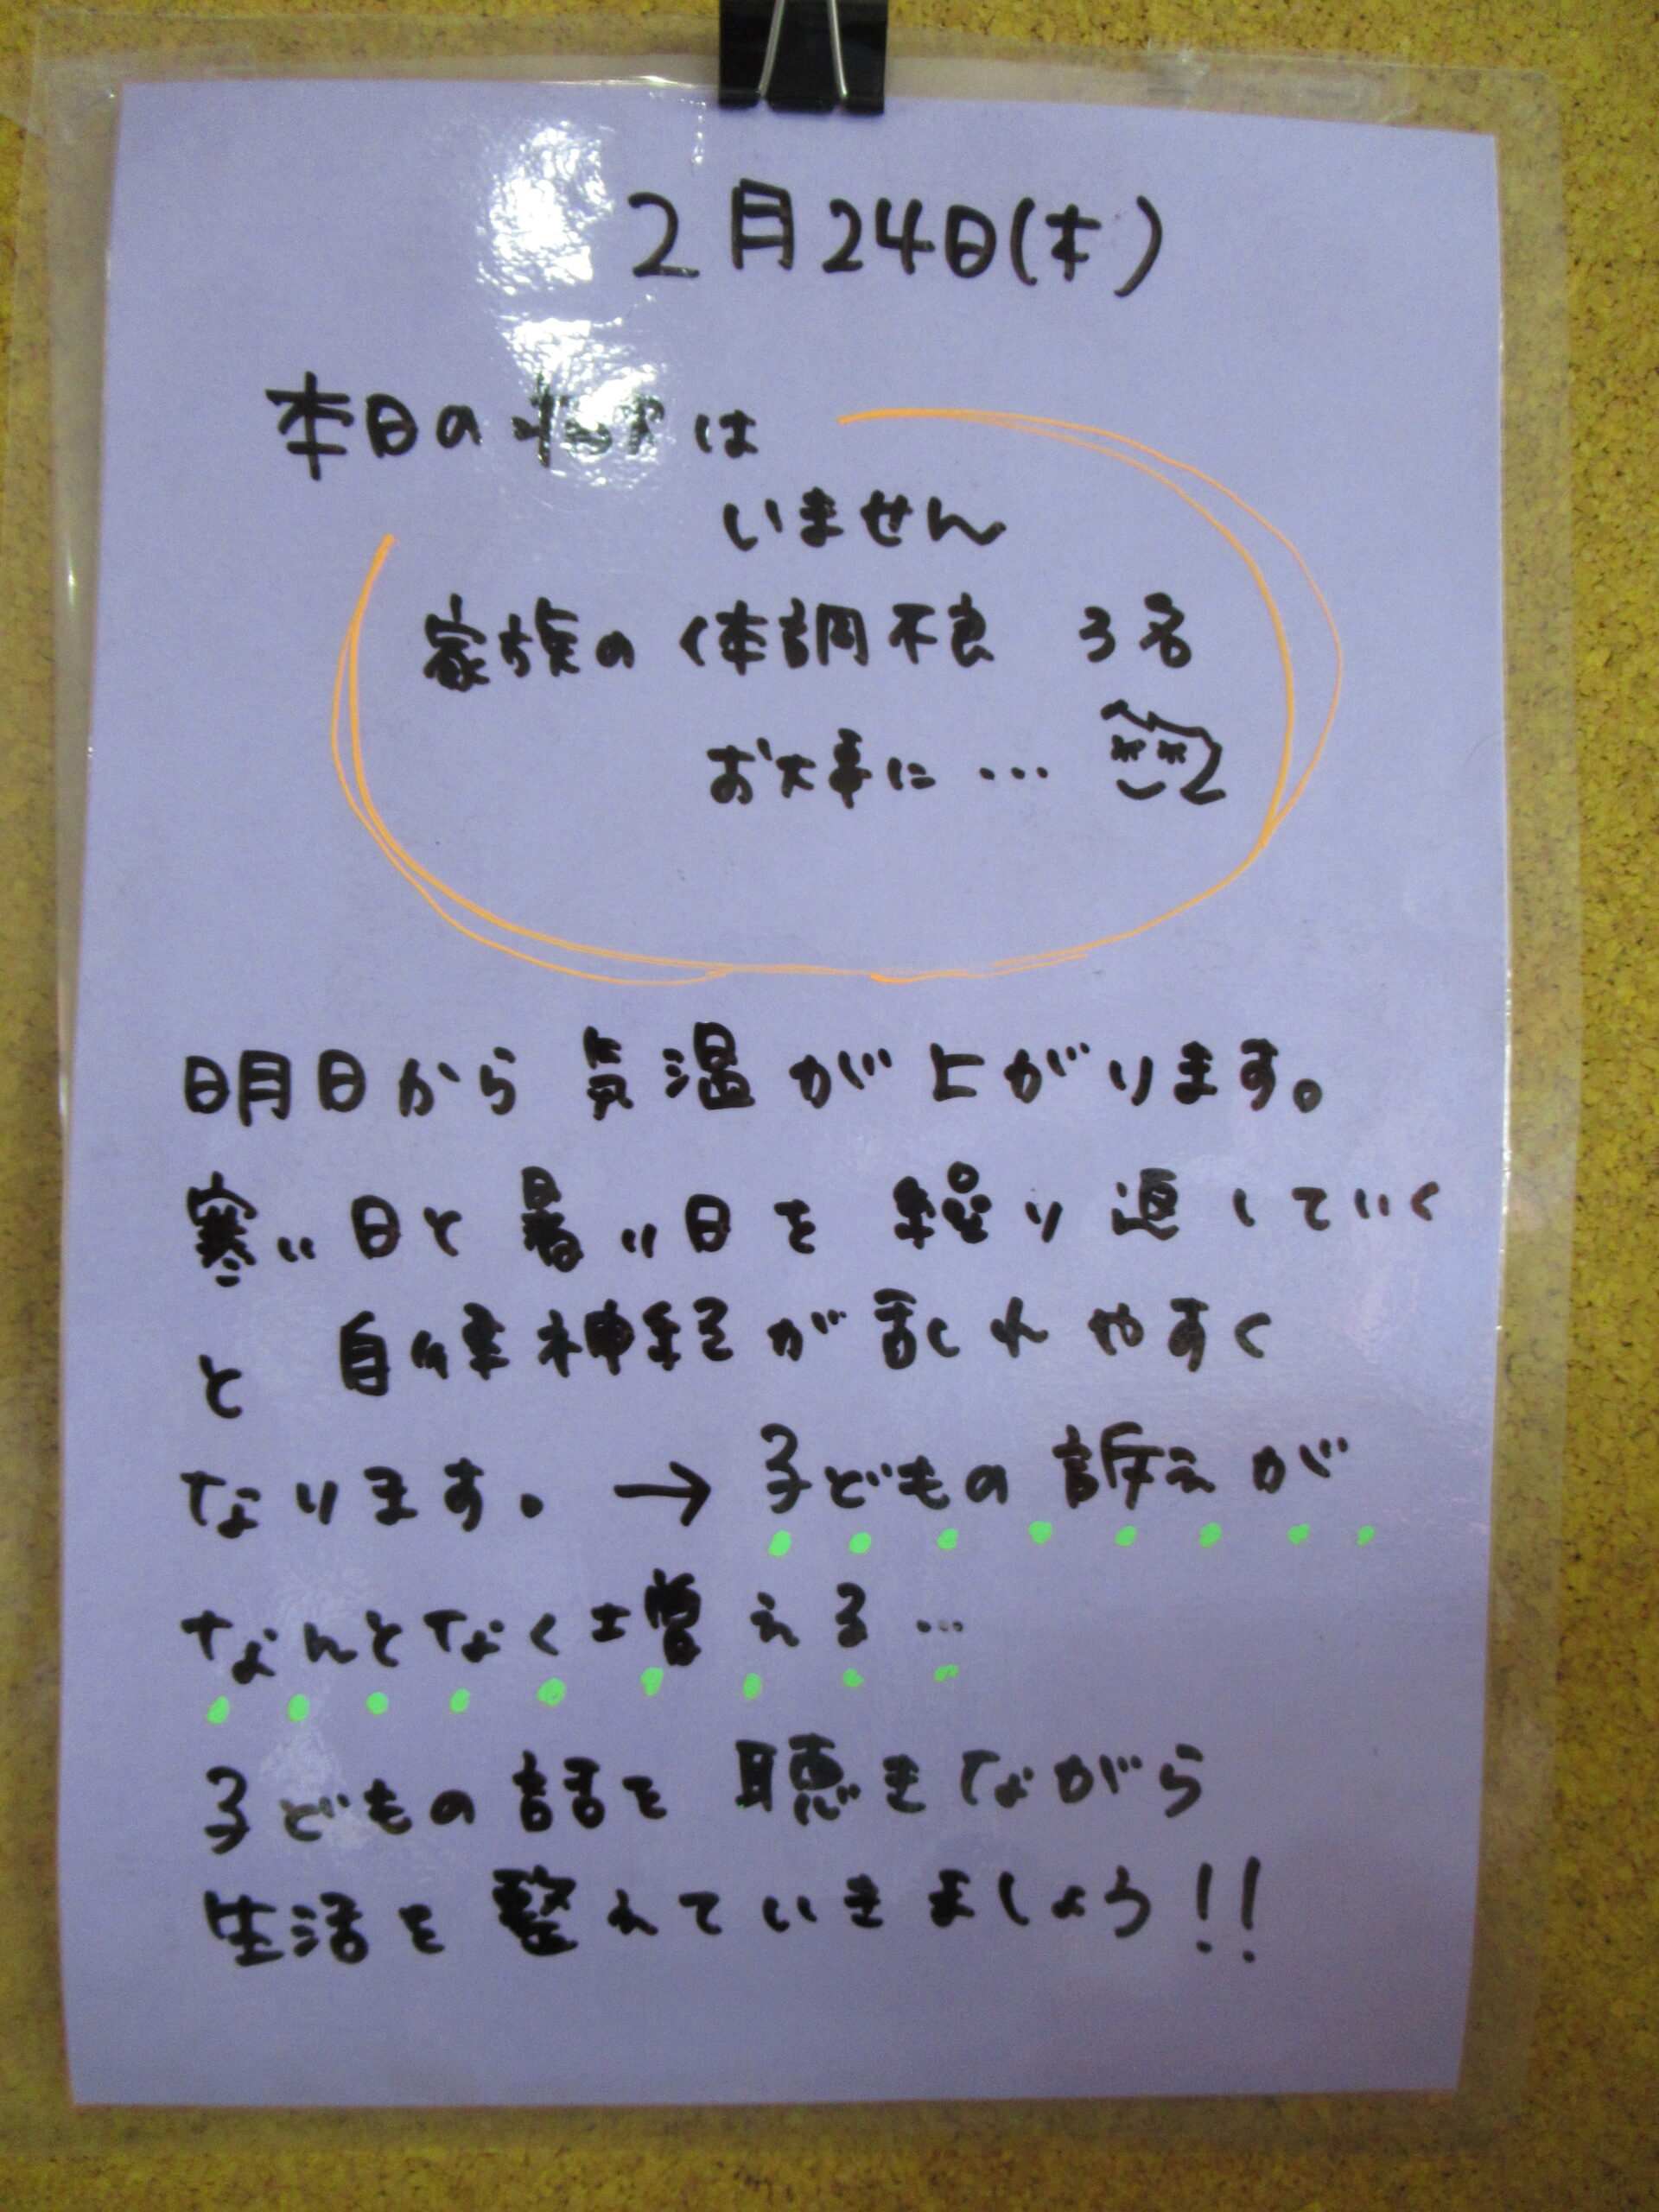 2月24日(木)
本日の は
いません
家族の体調不良 3名
お大事に…
明日から気温が上がります。
寒い日と暑い日を繰り返していく
と 自律神経が乱れやすく
なります。→子どもの訴えが
なんとなく増える…
子どもの話を聴きながら
生活を整えていきましょう!!